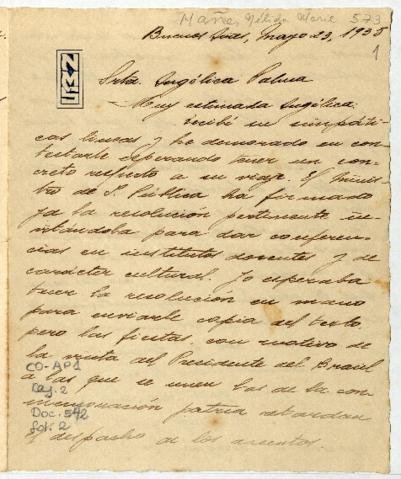 Mañé, Nélida María 573
Buenos Aires, Mayo 23, 1935
1
Srta. Angélica Palma
Muy estimada Angélica:
recibí su
cas líneas y he demorado en con-
testarle esperando tener un con-
creto respecto a su viaje. El Minis-
tro de I. Pública ha firmado
ya la resolución pertinente in-
vitándola para dar conferen-
cias en institutos docentes y de
carácter cultural. Yo esperaba
tener la resolución en mano
para enviarle copia del texto,
pero las fiestas, con motivo de
la visita del Presidente del Brasil
a las que se unen las de la con-
memoración patria retardan
el despacho de los asuntos.
CO-AP1
Leg. 2
Doc. 542
fol. 2